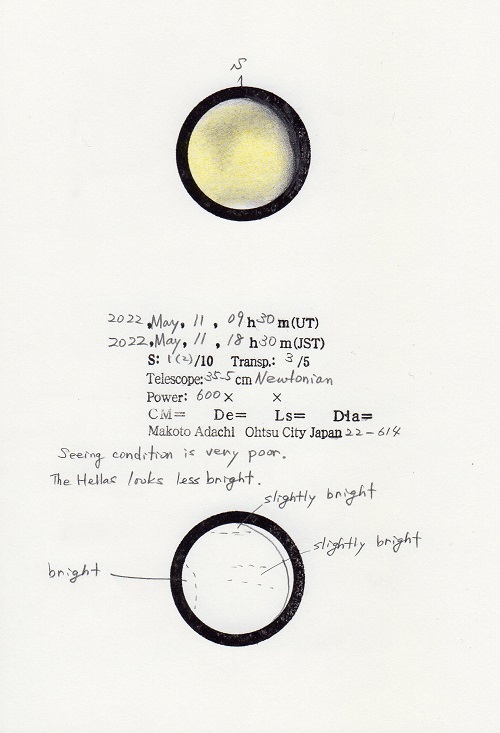 S
2022, May, 11, 09 h 30 m (UT)
2022, May, 11, 18 h 30 m (JST)
S: 1(2)/10 Transp.: 3 /5
Telescope: 35.5 cm Newtonian
Power: 600 × ×
CM= De= Ls= Dia=
Makoto Adachi Ohtsu City Japan 22-614
Seeing condition is very poor.
The Hellas looks less bright.
slightly bright
slightly bright
bright